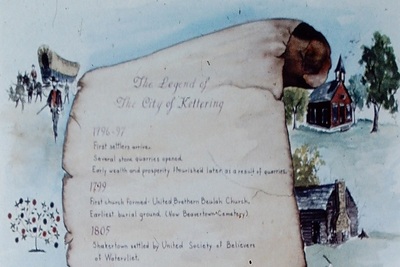 The Legend of
The City of Kettering
1796-97
First settlers arrive.
Several stone quarries opened.
Early wealth and prosperity flourished later as a result of quarries.
1799
First church formed - United Brethern Beulah Church.
Earliest burial ground. (Now Beavertown Cemetery).
1805
Shakertown settled by United Society of Believers
of Watervliet.